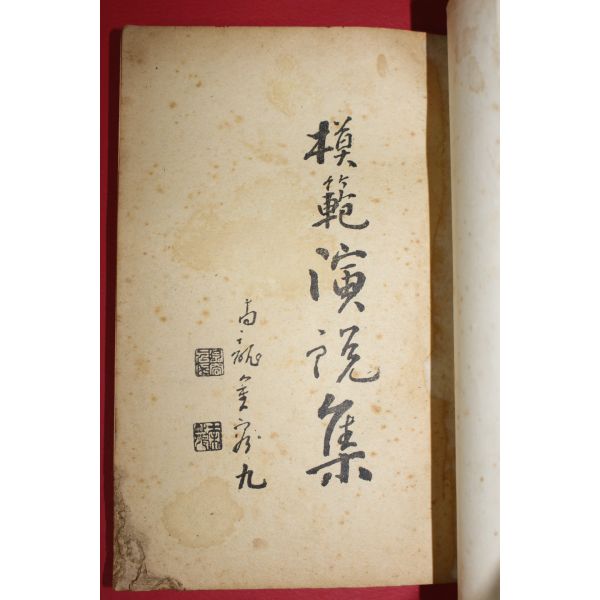 模範演說集
南龍金容九